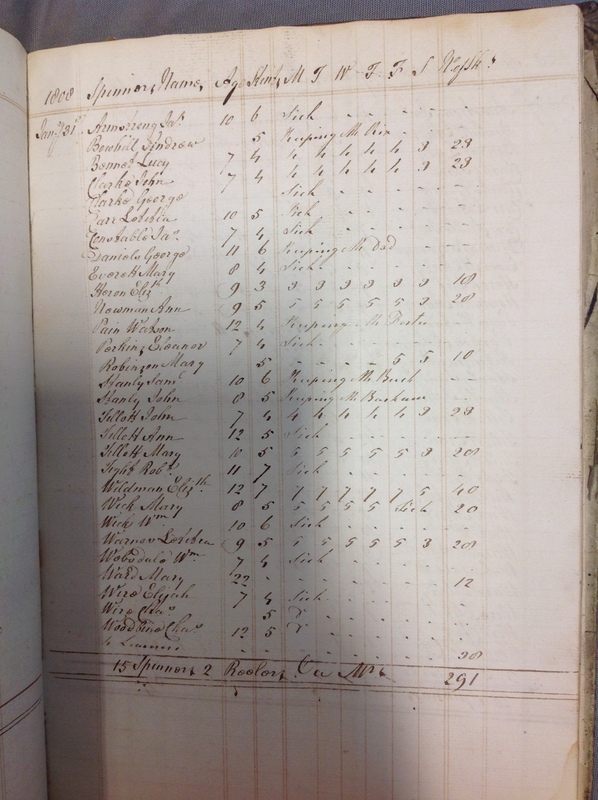 1808 Spinners Name Age Skins M T W T F S Nº Sks
Jany 31st Armstrong Jas 10 6 Sick - - - - -
Bowhill Andrew 5 Keeping Mr - -
Bennet Lucy 7 4 4 4 4 4 4 3 23
Clarke John 7 4 4 4 4 4 4 3 23
Clarke George Sick - - - - -
Carr Letitia 10 5 Sick - - - - -
Constable Jas 7 4 Sick - - - - -
Daniels George 11 6 Keeping Mr - -
Everett Mary 8 4 Sick - - - - -
Heron Elizth 9 3 3 3 3 3 3 3 18
Newman Ann 9 5 5 5 5 5 5 3 28
Pain Watson 12 4 Keeping Mr - -
Perkins Eleanor 7 4 Sick - - - - -
Robinson Mary 5 - - - - 5 5 10
Stanly Saml 10 6 Keeping Mr - -
Stanly John 8 5 Keeping Mr - -
Tillott John 7 4 4 4 4 4 4 3 23
Tillott Ann 12 5 Sick - - - - -
Tillett Mary 10 5 5 5 5 5 5 3 28
Tight Robt 11 7 Sick - - - - -
Wildman Elizth 12 7 7 7 7 7 7 5 40
Wick Mary 8 5 5 5 5 5 Sick 20
Wick Wm 10 6 Sick - - - - -
Warner Letitia 9 5 5 5 5 5 5 3 28
Wm 7 4 Sick - - - - -
Ward Mary 22 - - - - - - 12
Wire Elijah 7 4 Sick - - - - -
Wire Chas 5 Do - - - - -
Woodbine Chas 12 5 Do - - - - -
4 - - - - - - 38
15 Spinners 2 Reelers 291